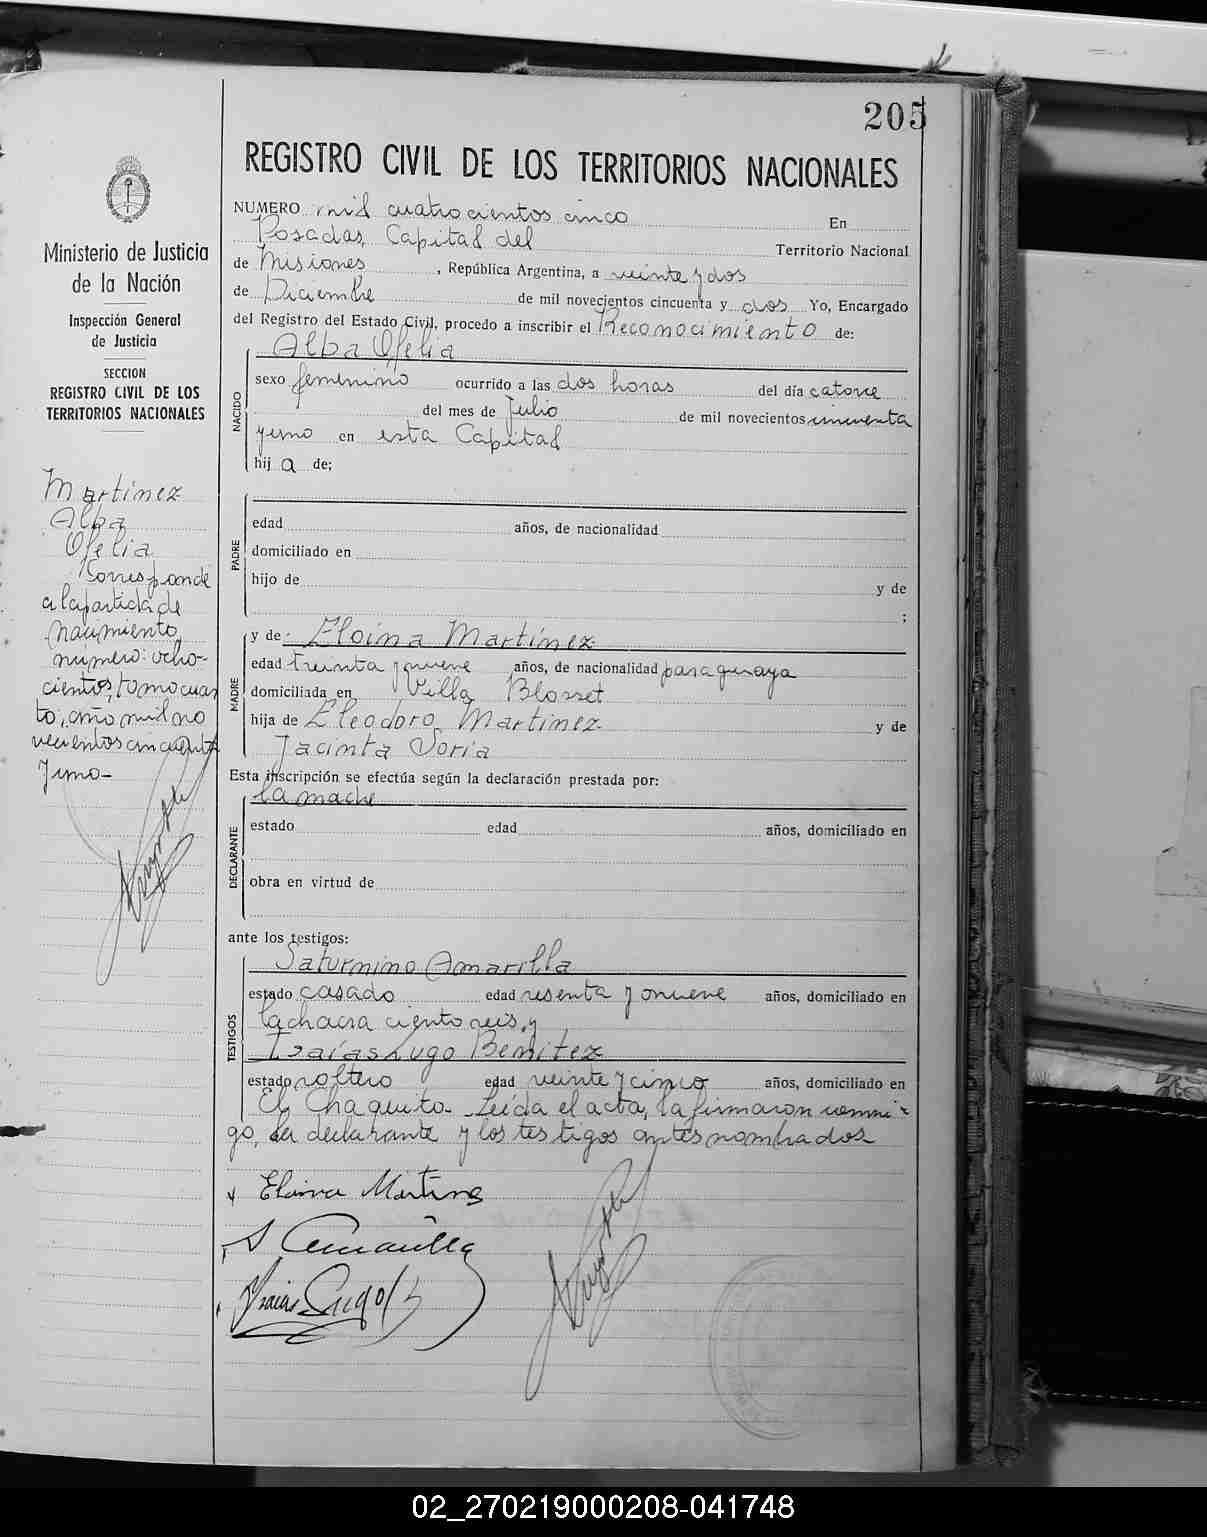 205
REGISTRO CIVIL DE LOS TERRITORIOS NACIONALES
Ministerio de Justicia
de la Nación
Inspección General
de Justicia
SECCION
REGISTRO CIVIL DE LOS
TERRITORIOS NACIONALES
Martinez
Alba
Ofelia
Corresponde
a la partida de
nacimiento
número: ocho-
cientos, tomo cuar
to, año mil no
vecientos cincuenta
y uno-
NUMERO mil cuatrocientos cinco En
Posadas, Capital del Territorio Nacional
de Misiones, República Argentina, a veinte y dos
de Diciembre de mil novecientos cincuenta y dos Yo, Encargado
del Registro del Estado Civil, procedo a inscribir el Reconocimiento de:
Alba Ofelia
NACIDO
sexo femenino ocurrido a las dos horas del día catorce
del mes de Julio de mil novecientos cincuenta
y uno en esta Capital
hij a de;
PADRE
edad años, de nacionalidad
domiciliado en
hijo de y de
;
MADRE
y de Eloina Martínez
edad treinta y nueve años, de nacionalidad paraguaya
domiciliada en Villa Blosset
hija de Eleodoro Martínez y de
Jacinta Soria
Esta inscripción se efectúa según la declaración prestada por:
la madre
DECLARANTE
estado edad años, domiciliado en
obra en virtud de
ante los testigos:
TESTIGOS
Saturnino Amarilla
estado casado edad sesenta y nueve años, domiciliado en
la chacra ciento seis, y
Isaías Lugo Benitez
estado soltero edad veinte y cinco años, domiciliado en
El Chaquito. Leída el acta, la firmaron conmi-
go, la declarante y los testigos antes nombrados
Eloina Martines
S Amarilla
Isaias Lugo B
02_270219000208-041748